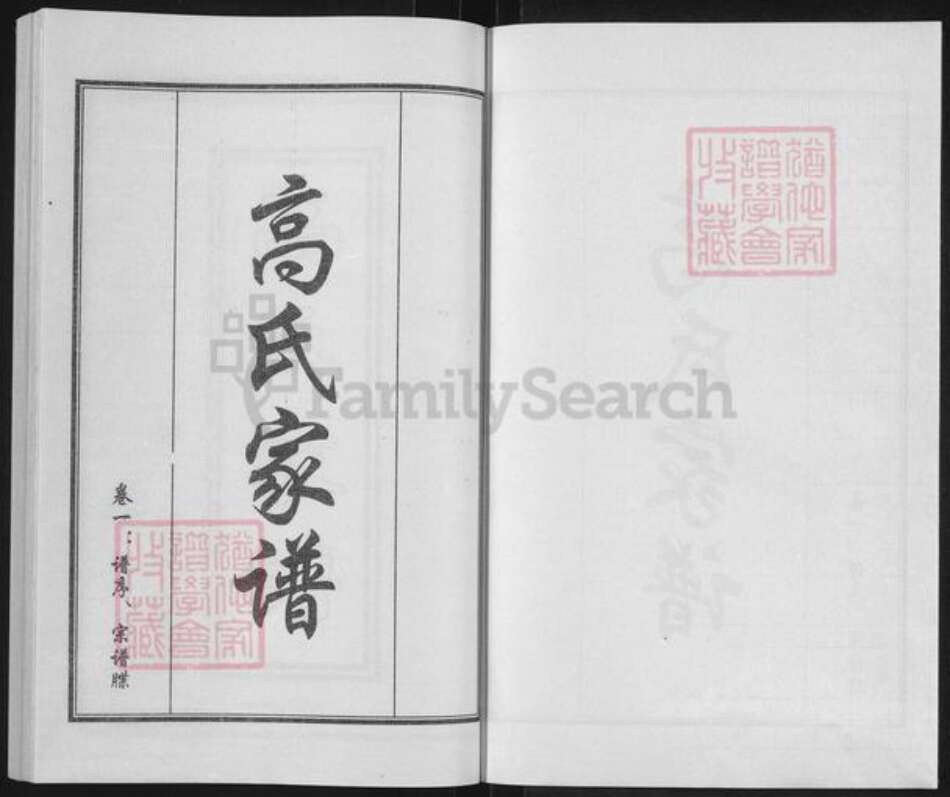 猶他家
譜學會
收藏
高氏家谱
卷一：谱序、宗谱牒
猶他家
譜學會
收藏
FamilySearch